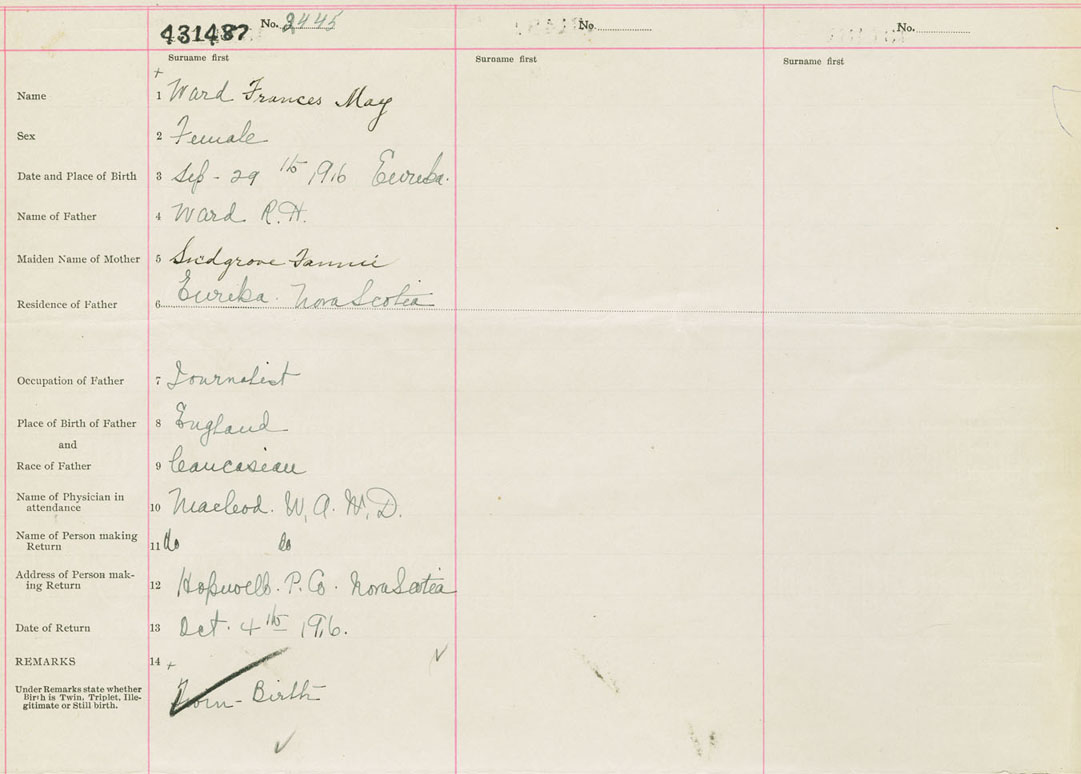 431487 No. 2445 No. No.
Surname first Surname first Surname first
Name 1 Ward Frances May
Sex 2 Female
Date and Place of Birth 3 Sep - 29 th 1916 Eureka.
Name of Father 4 Ward R.H.
Maiden Name of Mother 5 Fannie
Residence of Father 6 Eureka. Nova Scotia
Occupation of Father 7 Journalist
Place of Birth of Father 8 England
and
Race of Father 9 Caucasian
Name of Physician in
attendance 10 Macleod. W. A. M. D.
Name of Person making
Return 11 do do
Address of Person mak-
ing Return 12 Hopewell. P. Co. Nova Scotia
Date of Return 13 Oct. 4th 1916.
REMARKS 14
Under Remarks state whether
Birth is Twin, Triplet, Ille-
gitimate or Still birth.
Twin - Birth